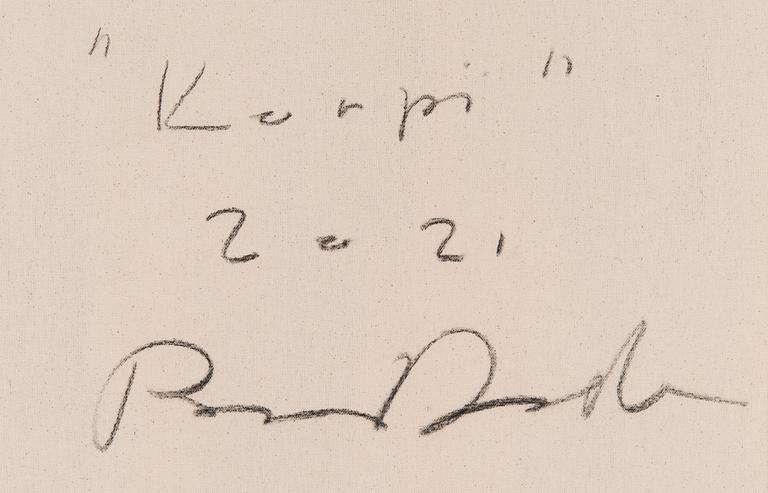 "Korpi"
2021